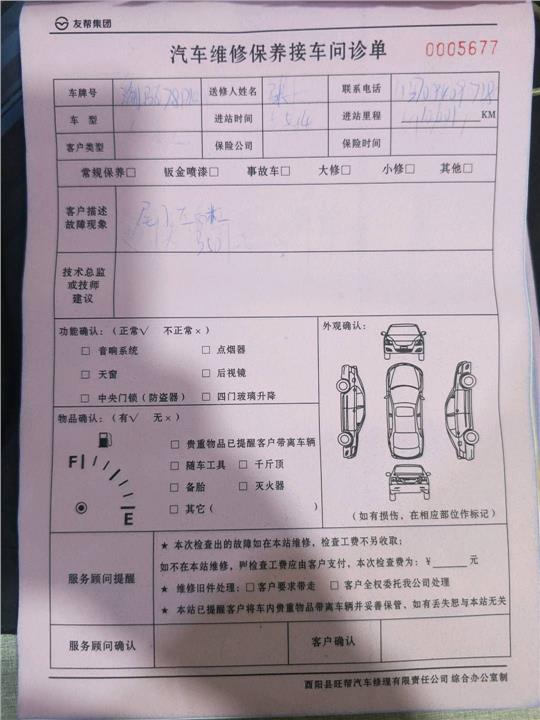 友帮集团
汽车维修保养接车问诊单 0005677
车牌号 送修人姓名 张 联系电话
车 型 进站时间 5.14 进站里程 KM
客户类型 保险公司 保险时间
常规保养□ 钣金喷漆□ 事故车□ 大修□ 小修□ 其他□
客户描述
故障现象
尾门左
350
技术总监
或技师
建议
功能确认：（正常√ 不正常×） 外观确认：
□ 音响系统 □ 点烟器
□ 天窗 □ 后视镜
□ 中央门锁（防盗器） □ 四门玻璃升降
物品确认：（有√ 无×）
□ 贵重物品已提醒客户带离车辆
F □ 随车工具 □ 千斤顶
□ 备胎 □ 灭火器
E □ 其它（ ）
（如有损伤，在相应部位作标记）
服务顾问提醒
★ 本次检查出的故障如在本站维修，检查工费不另收取；
如不在本站维修，则检查工费应由客户支付，本次检查费为：￥______元
★ 维修旧件处理：□ 客户要求带走 □ 客户全权委托我公司处理
★ 本站已提醒客户将车内贵重物品带离车辆并妥善保管，如有丢失恕与本站无关
服务顾问确认 客户确认
酉阳县旺帮汽车修理有限责任公司 综合办公室制